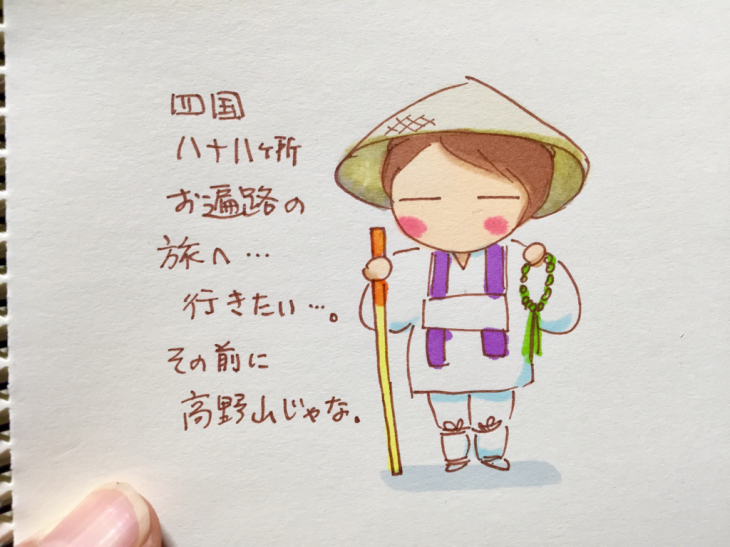 四国
八十八ヶ所
お遍路の
旅へ…
行きたい…。
その前に
高野山じゃな。